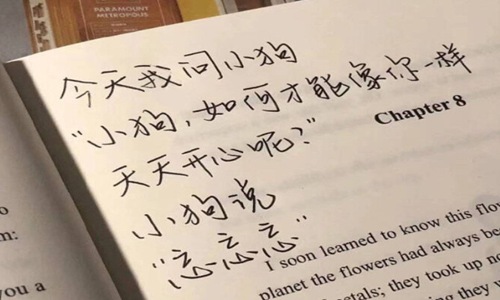 PARAMOUNT
METROPOLIS
今天我问小狗
"小狗,如何才能像你一样
天天开心呢?"
小狗说
"忘忘忘"
Chapter 8
I soon learned to know this flow
planet the flowers had always be
etals; they took up no
they
m:
you a